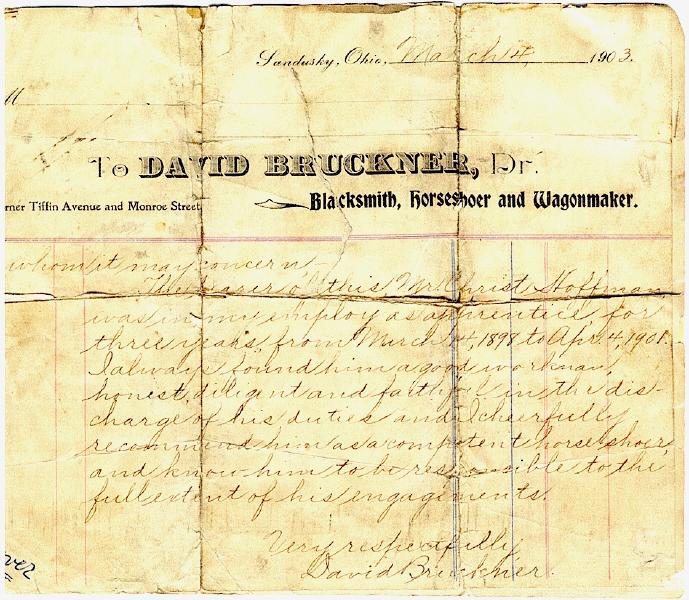 Sandusky, Ohio, March 4, 1903.
M
To DAVID BRUCKNER, Dr.
rner Tiffin Avenue and Monroe Street
Blacksmith, Horseshoer and Wagonmaker.
whom it may concern
The bearer of this Mr. Christ Hoffman,
was in my employ as apprentice for
three years, from March 4, 1898 to Apr. 4, 1901.
I always found him a good workman,
honest, diligent and faithful in the dis-
charge of his duties and I cheerfully
recommend him as a competent horse shoer,
and know him to be responsible to the
full extent of his engagements.
Very respectfully
David Bruckner.